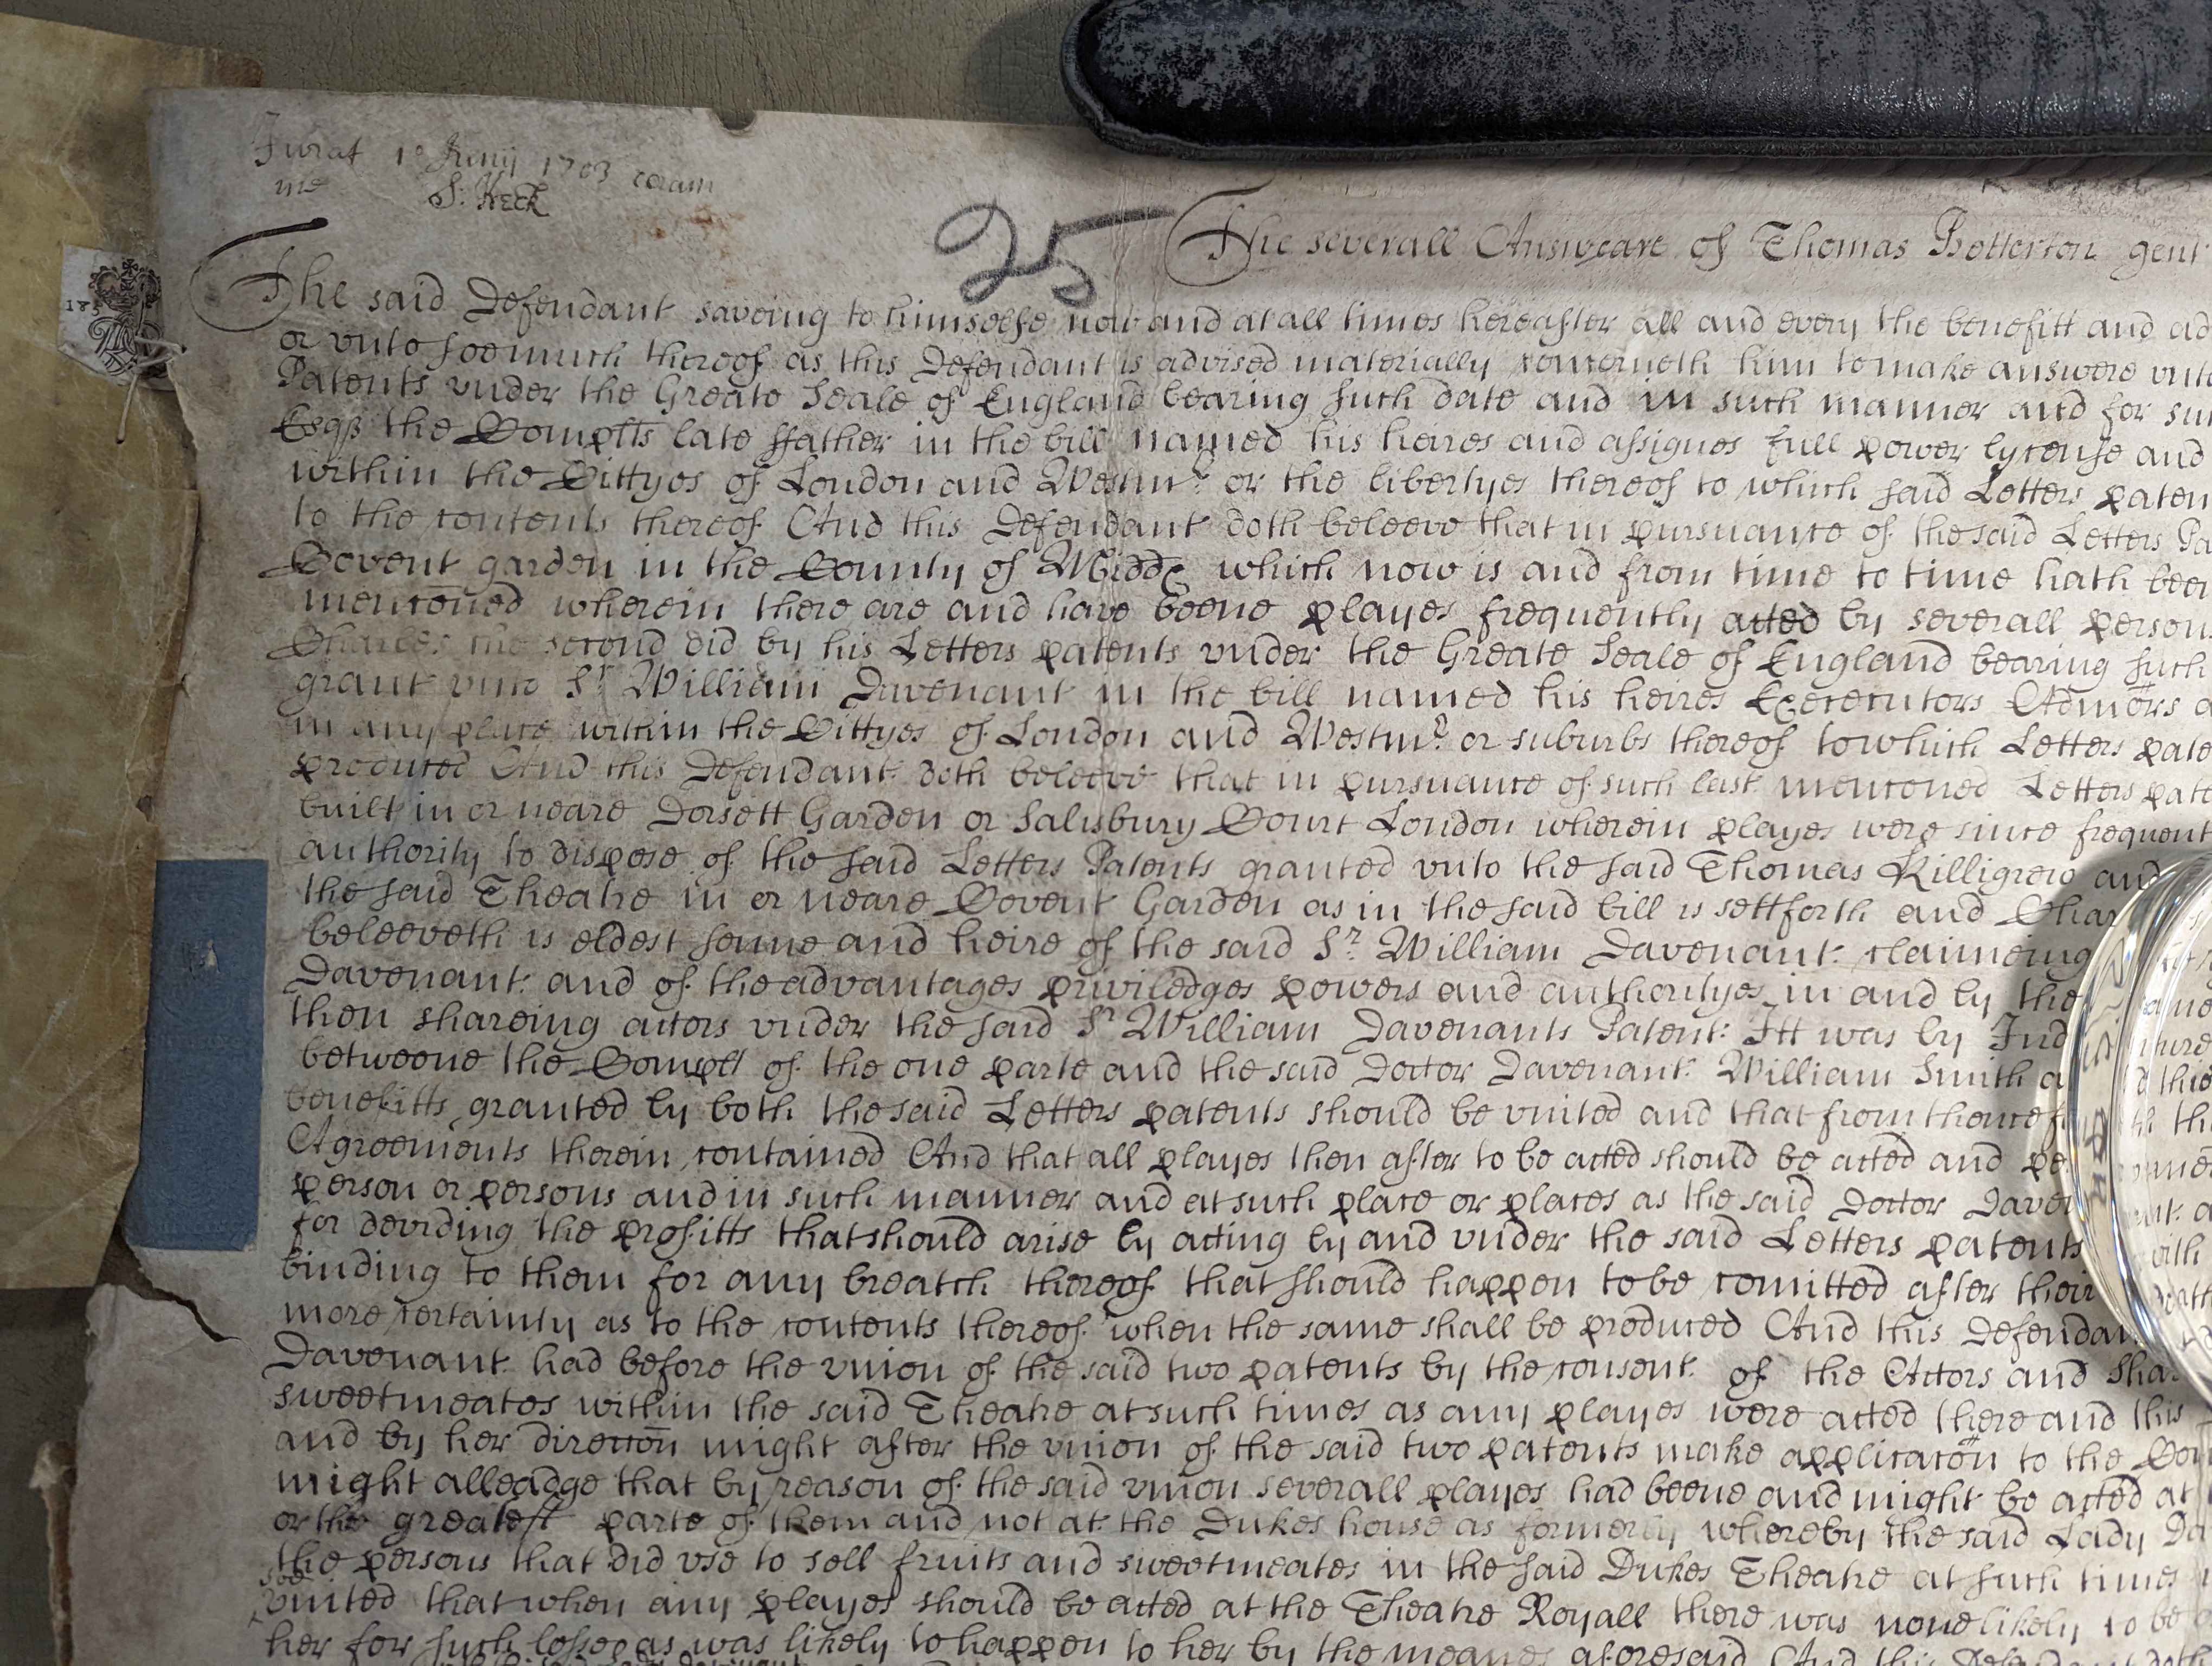 Jurat 1o Junij 1703 coram
me S: Keck
25
The severall Answeare of Thomas Betterton gent
The said Defendant saveing to himselfe now and at all times hereafter all and every the benefitt and ad
or vnto soe much thereof as this Defendant is advised materially concerneth him to make answere vnto
Patents vnder the Greate Seale of England bearing such date and in such manner and for suc
Esqr the Complts late ffather in the bill named his heires and assignes full power lycense and
within the Cittyes of London and Westmr or the libertyes thereof to which said Letters paten
to the contents thereof And this Defendant doth beleeve that in pursuance of the said Letters Pa
Covent garden in the County of Midds which now is and from time to time hath been
menconed wherein there are and have beene playes frequently acted by severall person
Charles the second did by his Letters patents vnder the Greate Seale of England bearing such
grant vnto Sr William Davenant in the bill named his heires Executors Admors a
in any place within the Cittyes of London and Westmr or suburbs thereof to which Letters pate
produced And this Defendant doth beleeve that in pursuance of such last menconed Letters pate
built in or neare Dorsett Garden or Salisbury Court London wherein playes were since frequent
authority to dispose of the said Letters Patents granted vnto the said Thomas Killigrew and
the said Theatre in or neare Covent Garden as in the said bill is sett forth and Char
beleeveth is eldest sonne and heire of the said Sr William Davenant claimeing
Davenant and of the advantages priviledges powers and authorityes in and by the
then shareing actors vnder the said Sr William Davenants Patent: Itt was by Ind
betweene the Complt of the one parte and the said Doctor Davenant William Smith a
benefitts granted by both the said Letters patents should be vnited and that from thence f
Agreements therein contained And that all playes then after to be acted should be acted and pe
person or persons and in such manner and at such place or places as the said Doctor Daven
for deviding the profitts that should arise by acting by and vnder the said Letters patents
binding to them for any breatch thereof that should happen to be comitted after their
more certainty as to the contents thereof when the same shall be produced And this Defendan
Davenant had before the vnion of the said two patents by the consent of the Actors and Sha
sweetmeates within the said Theatre at such times as any playes were acted there and this
and by her direccon might after the vnion of the said two patents make applicacon to the Com
might alleadge that by reason of the said vnion severall playes had beene and might be acted at
or the greatest parte of them and not at the Dukes house as formerly whereby the said Lady Da
the persons that did vse to sell fruits and sweetmeates in the said Dukes Theatre at such times
soe
vnited that when any playes should be acted at the Theatre Royall there was none likely to be
her for such losse as was likely to happen to her by the meanes aforesaid And this Defendant doth